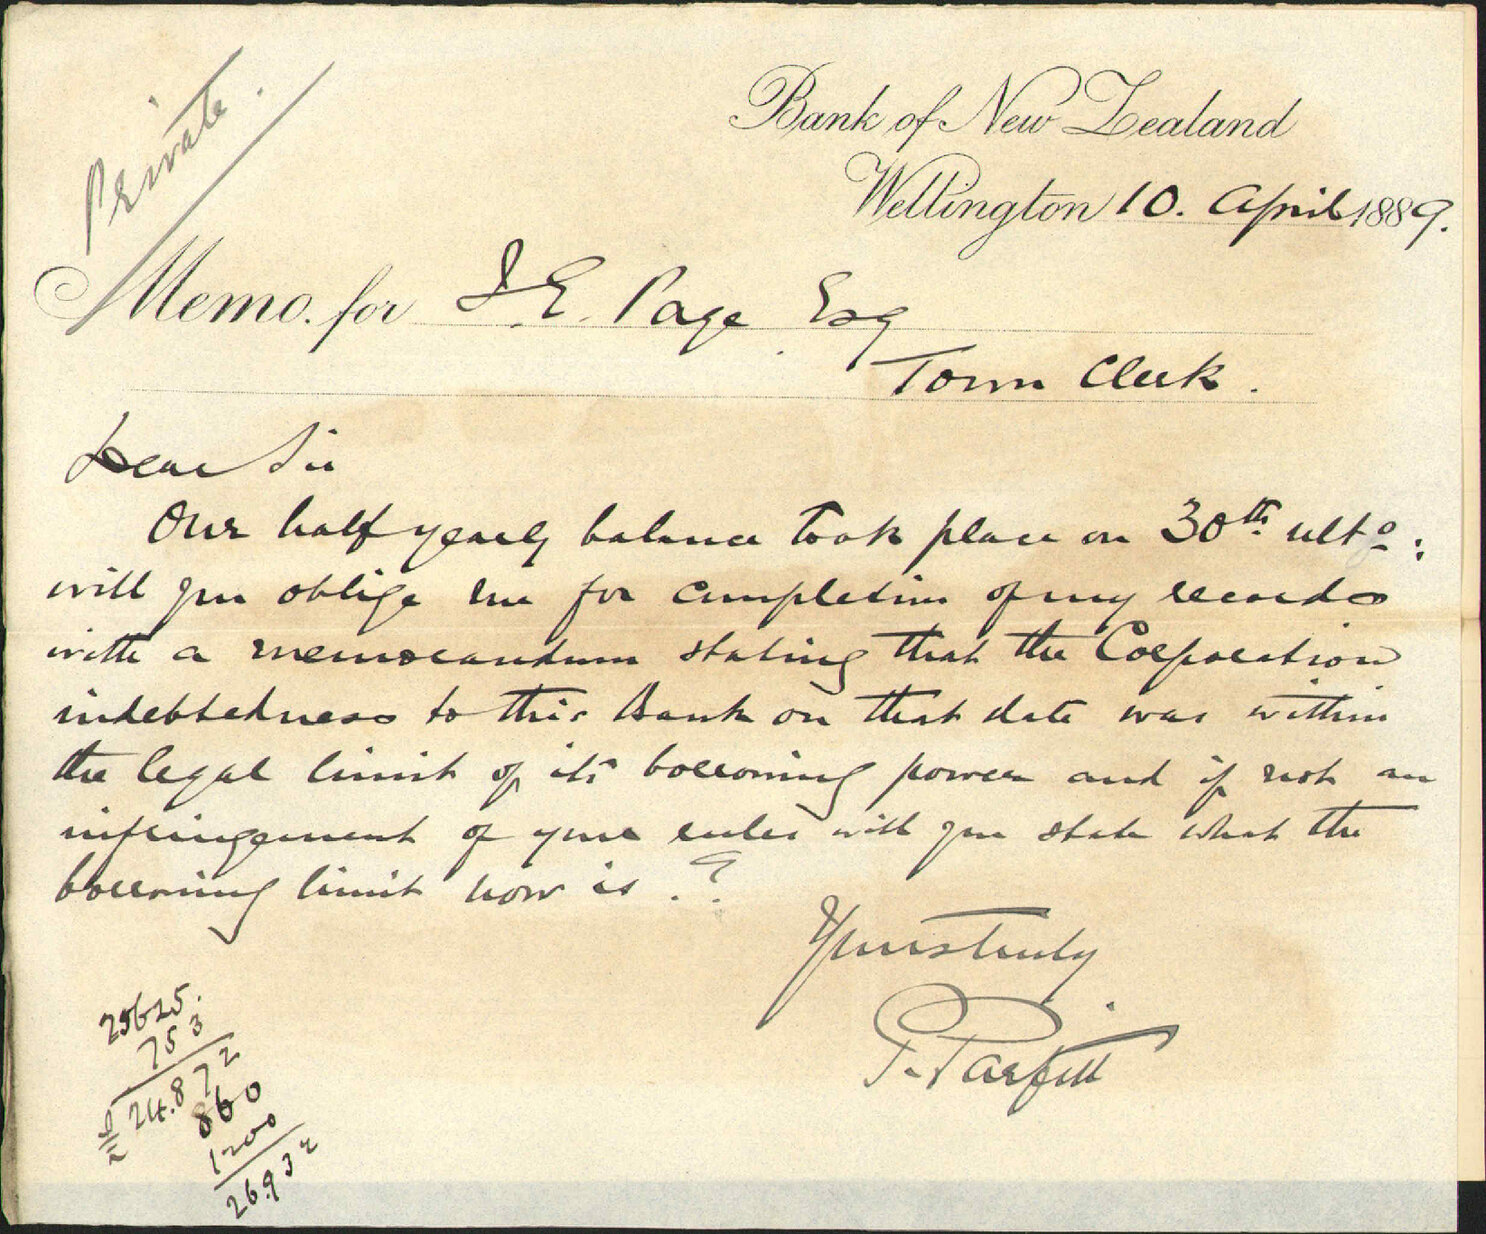 Private.
Bank of New Zealand
Wellington 10. April 1889.
Memo. for J. E. Page Esq
Town Clerk.
Dear Sir
Our half yearly balance took place on 30th. ulto:
will you oblige me for completion of my records
with a memorandum stating that the Corporation
indebtedness to this Bank on that date was within
the legal limit of its borrowing power and if not an
infringement of your rules will you state what the
borrowing limit now is.?
Yours truly
P. Parfitt
25625.
753
£ 24.872
860
1200
26932